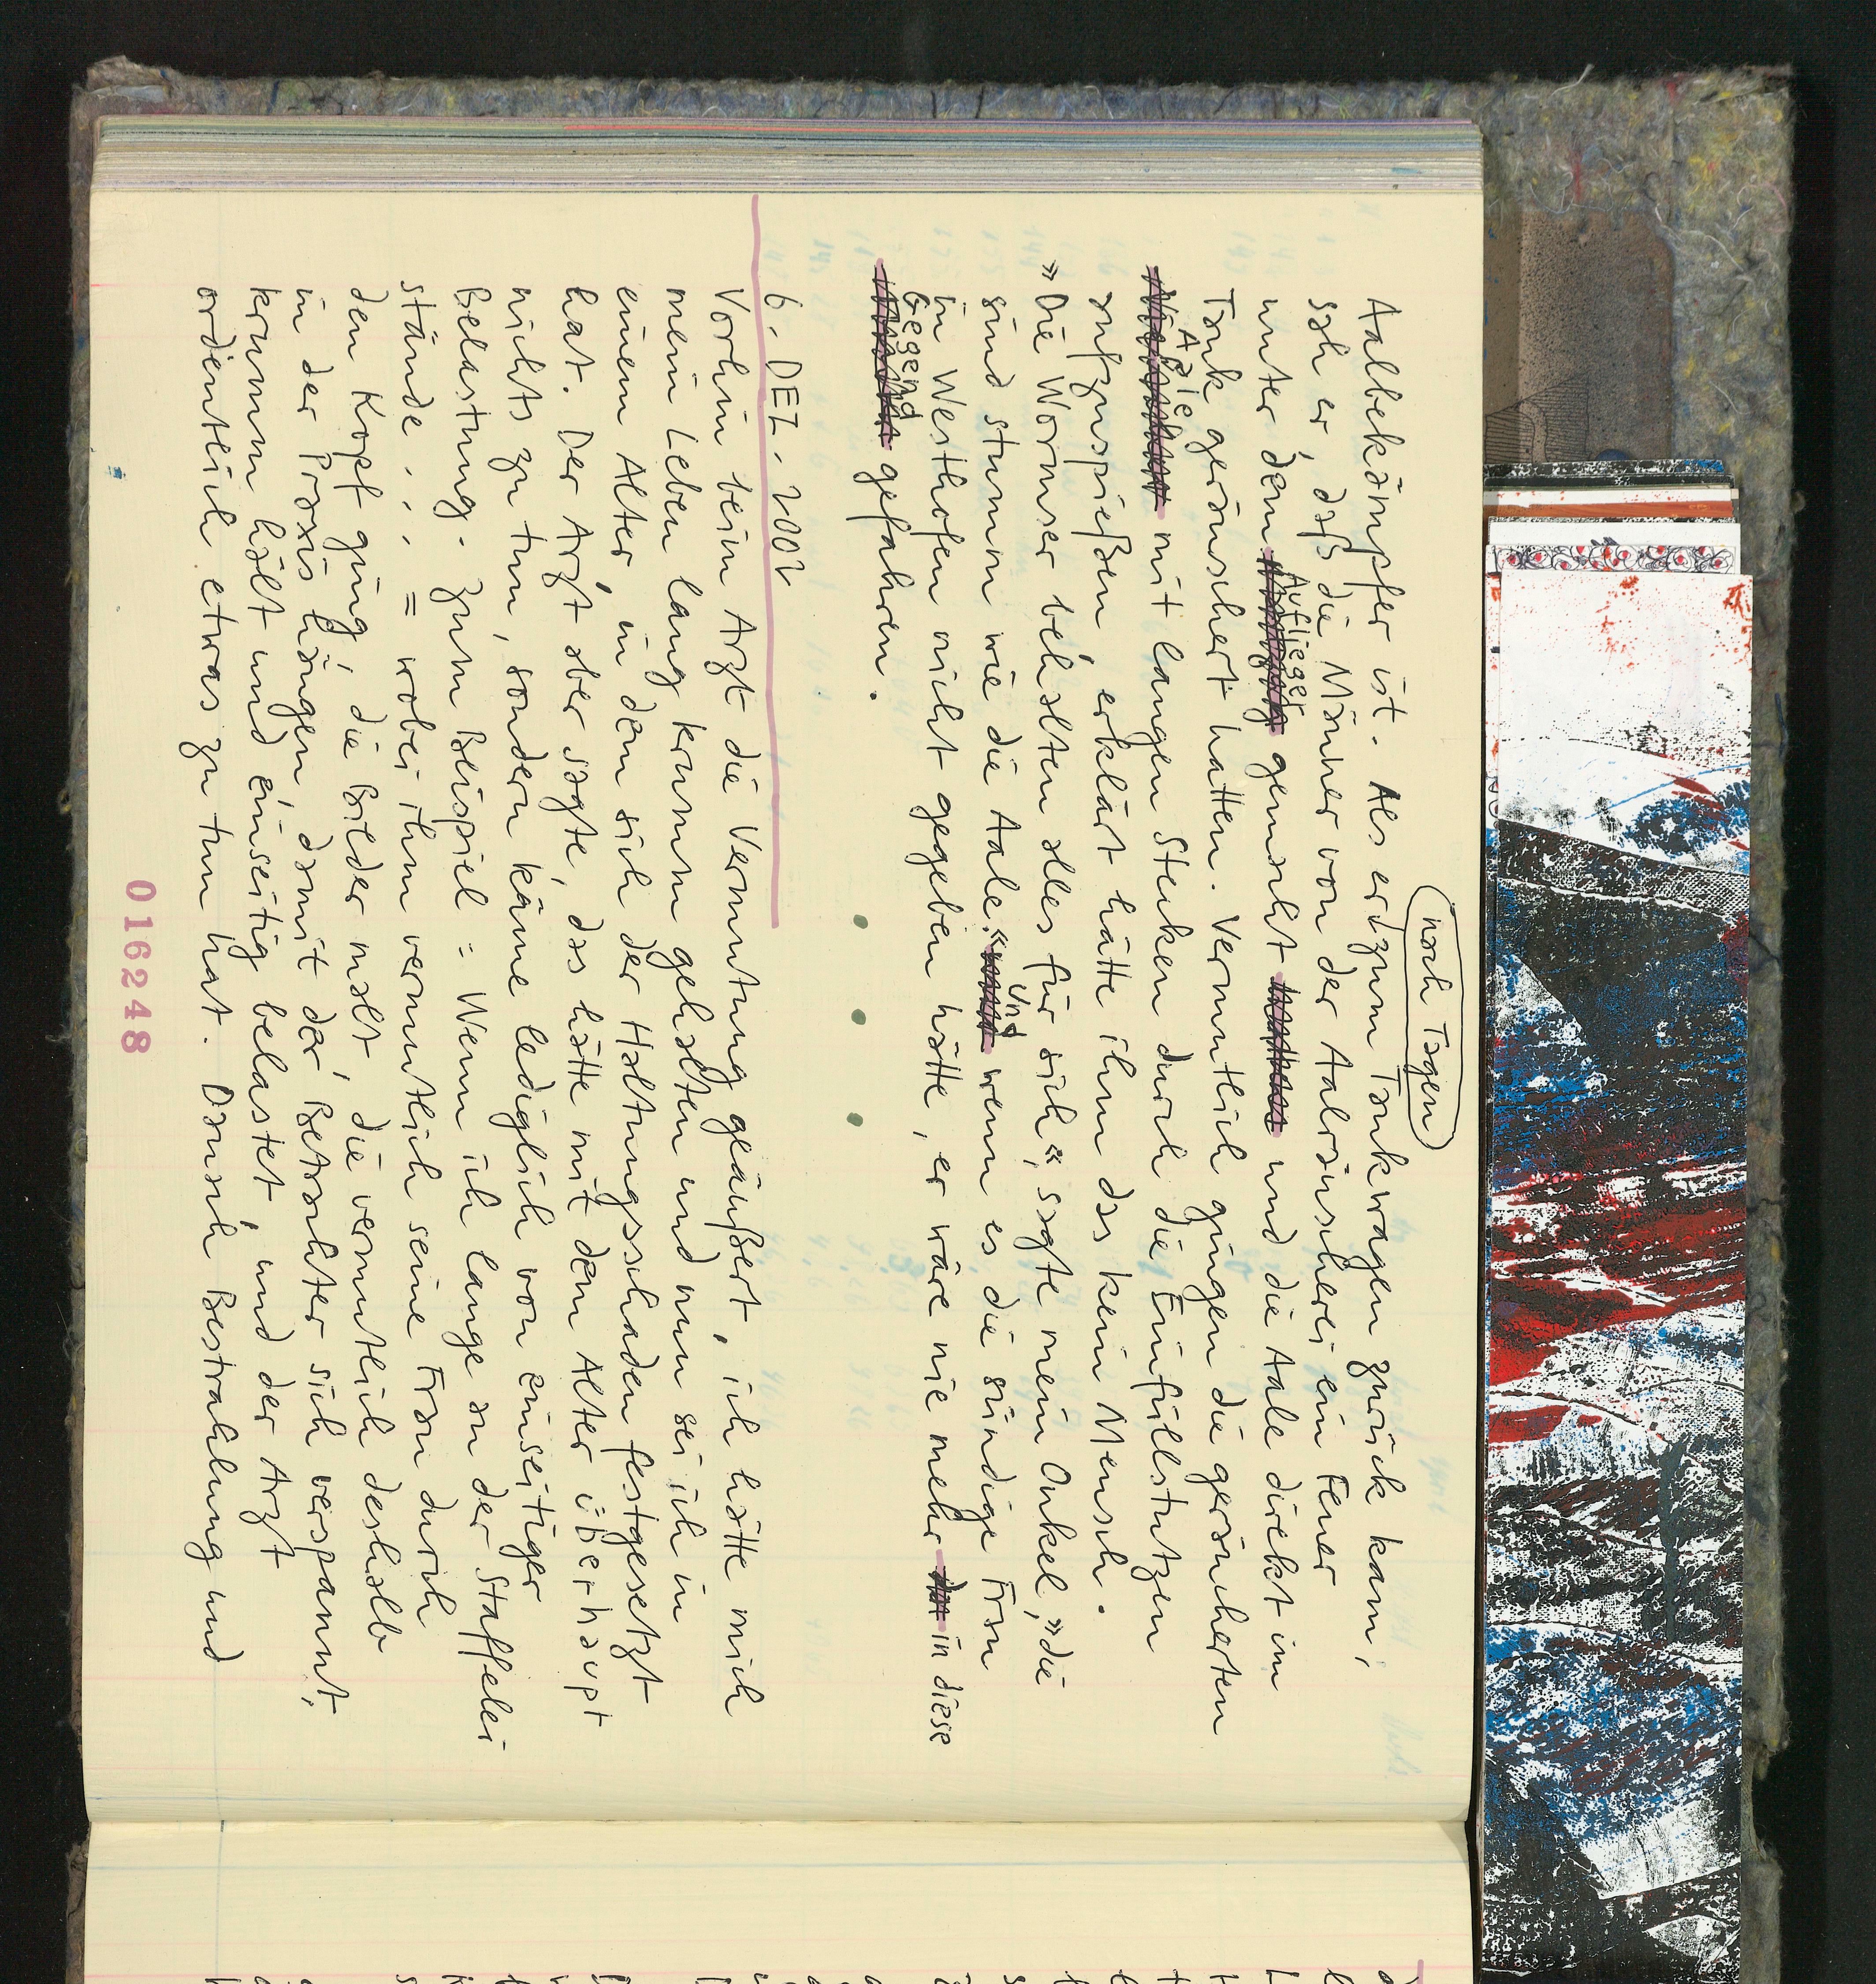 nach Tagen
Aalbekämpfer ist. Als er zum Tankwagen zurück kam,
sah er, daß die Männer von der Aalräucherei ein Feuer
unter dem Auflieger gemacht und die Aale direkt im
Tank geräuchert hatten. Vermutlich gingen die geräucherten
Aale mit langen Stecken durch die Einfüllstutzen
aufzuspießen, erklärt hätte ihm das kein Mensch.
»Die Wormser behalten alles für sich«, sagte mein Onkel, »die
sind stumm wie die Aale.« Und wenn es die sündige Frau
in Westhofen nicht gegeben hätte, er wäre nie mehr in diese
Gegend gefahren.
6. DEZ. 2002
Vorhin beim Arzt die Vermutung geäußert, ich hätte mich
mein Leben lang krumm gehalten und nun sei ich in
einem Alter, in dem sich der Haltungsschaden festgesetzt
hat. Der Arzt aber sagte, das hätte mit dem Alter überhaupt
nichts zu tun, sondern käme lediglich von einseitiger
Belastung. Zum Beispiel: Wenn ich lange an der Staffelei
stände ... = wobei ihm vermutlich seine Frau durch
den Kopf ging, die Bilder malt, die vermutlich deshalb
in der Praxis hängen, damit der Betrachter sich verspannt,
krumm hält und einseitig belastet, und der Arzt
ordentlich etwas zu tun hat. Danach Bestrahlung und
016248